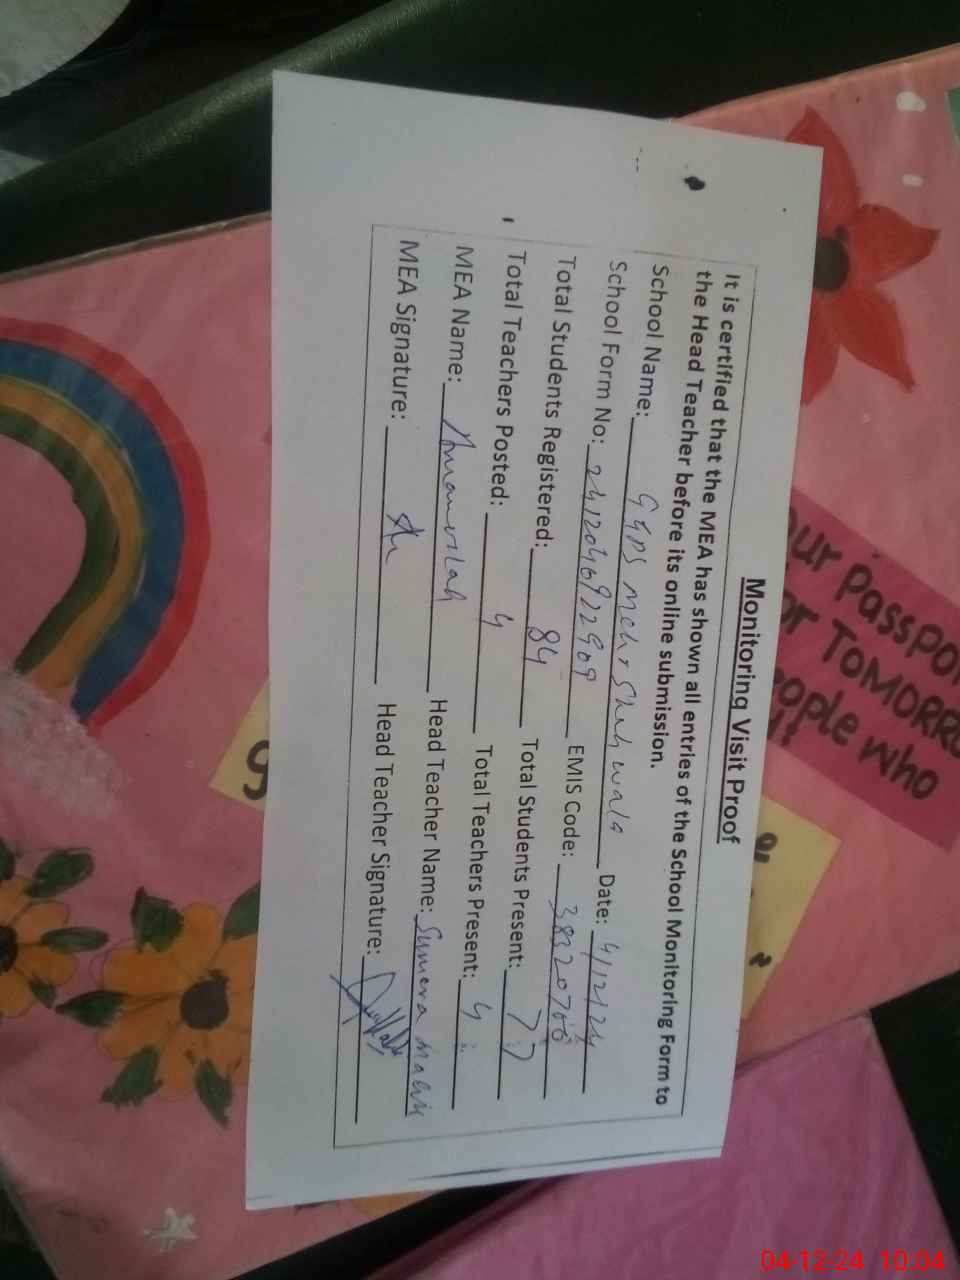 Monitoring Visit Proof
It is certified that the MEA has shown all entries of the School Monitoring Form to
the Head Teacher before its online submission.
School Name: GGPS Mehr Shah wala Date: 4/12/24
School Form No: 2412046922909 EMIS Code: 38320700
Total Students Registered: 84 Total Students Present: 77
Total Teachers Posted: 4 Total Teachers Present: 4
MEA Name: Head Teacher Name: Sumera Malik
MEA Signature: Head Teacher Signature:
our Passpo
or TOMORR
eople who
04-12-24 10:04